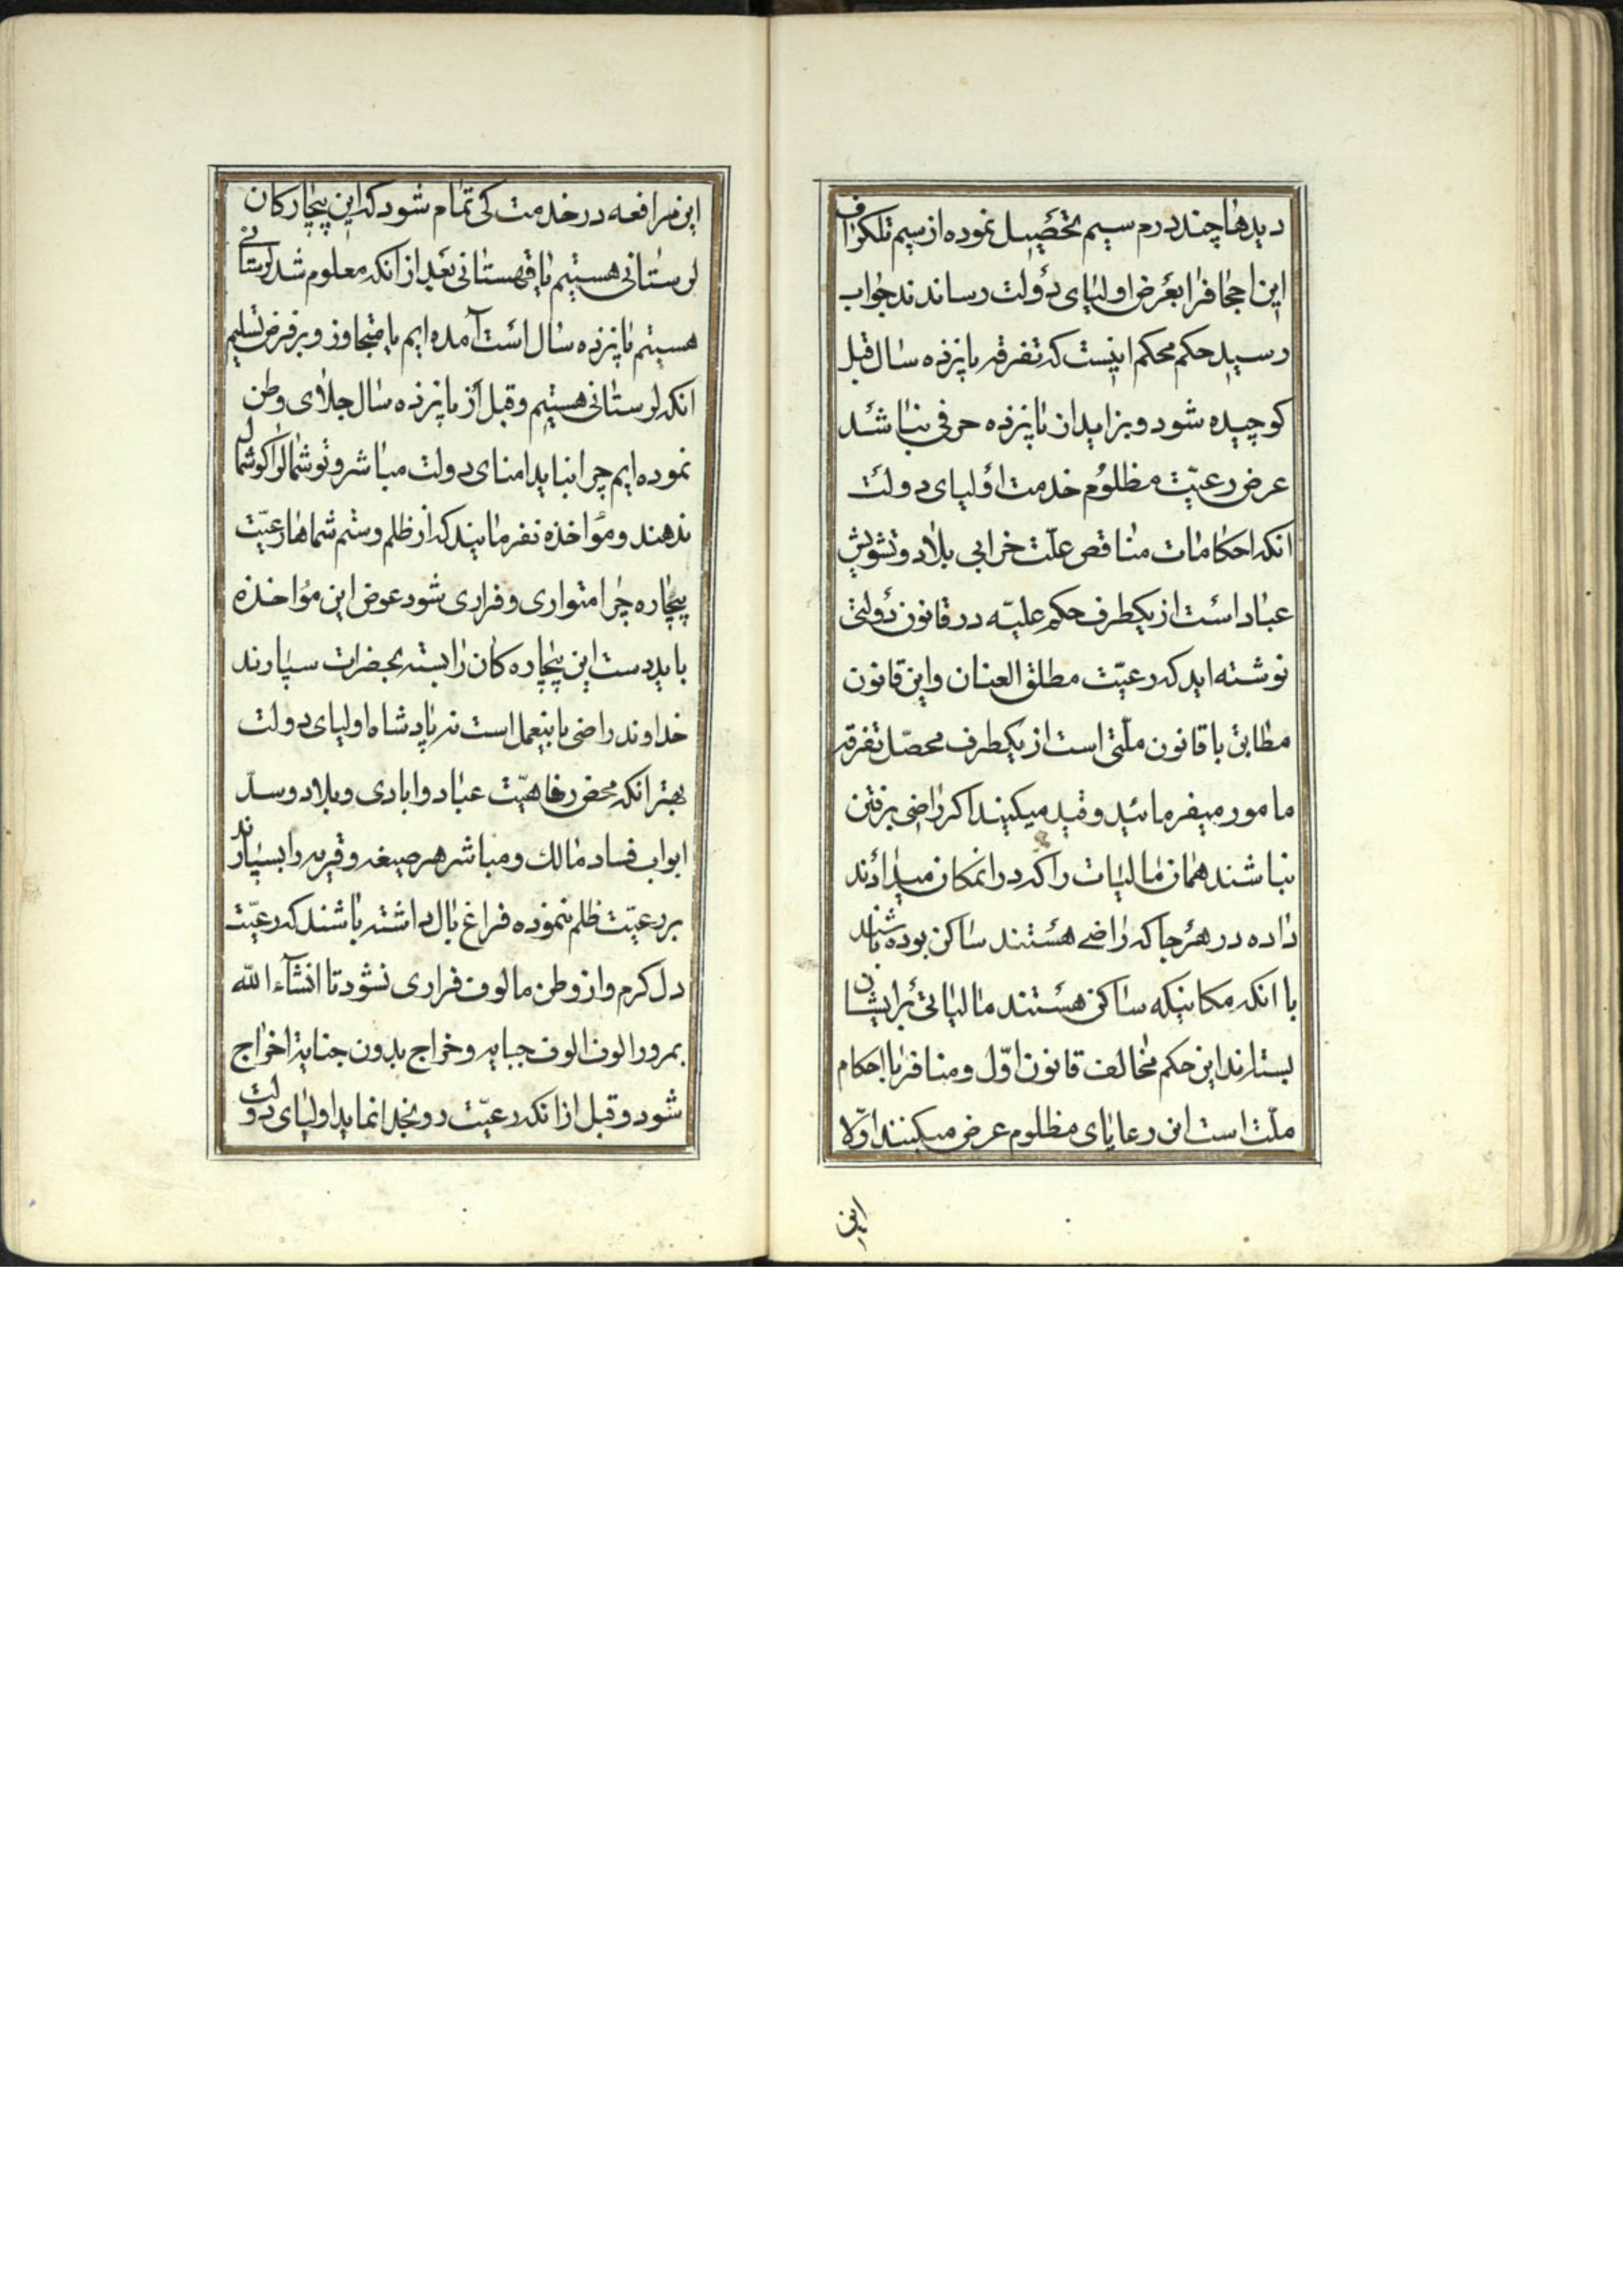 دیدها چند درم سیم تحصیل نموده از سیم تلکراف
این اجحاف را بعرض اولیای دولت رساندند جواب
رسید حکم محکم اینست که تفرقه پانزده سال قبل
کوچیده شود و بزاید از پانزده حرفی نباشد
عرض رعیّت مظلوم خدمت اولیای دولت
انکه احکامات مناقص علّت خرابی بلاد و تشویش
عباد است از یکطرف حکم علیّه در قانون دولتی
نوشته اید که رعیّت مطلق العنان و این قانون
مطابق با قانون ملّتی است از یکطرف محصّل تفرقه
مامور میفرمائید و قید میکیند اکر راضی برفتن
نباشند همان مالیات را که در انمکان میدادند
داده در هر جا که راضی هستند ساکن بوده باشند
با انکه مکانیکه ساکن هستند مالیاتی بر ایشان
بستارند این حکم مخالف قانون اوّل و منافر با احکام
ملّت است این رعایای مظلوم عرض میکینند اوّلا
این
این مرافعه در خدمت کی تمام شود که این بیچارکان
لرستانی هستیم یا قهستانی بعد از انکه معلوم شد لرستانی
هستیم پانزده سال است آمده ایم یا متجاوز و بر فرض تسلیم
انکه لرستانی هستیم و قبل از پانزده سال جلای وطن
نموده ایم چرا نباید امنای دولت مباشر و توشمال را کوشمال
ندهند و مؤاخذه نفرمایند که از ظلم و ستم شماها رعیّت
بیچاره چرا متواری و فراری شود عوض این مؤاخذه
باید دست این بیچاره کان را بسته بحضرات سپارند
خداوند راضی باینعمل است نه پادشاه اولیای دولت
بهتر انکه محض رفاهیّت عباد و ابادی و بلاد و سدّ
ابواب فساد مالك و مباشر هر صیغه و قریه را بسپارند
بر رعیّت ظلم ننموده فراغ بال داشته باشند که رعیّت
دل کرم و از وطن مالوف فراری نشود تا انشآء الله
بمرور الوف الوف جبایه و خراج بدون جنایة اخراج
شود و قبل از انکه رعیّت رو بخدا نماید اولیای دولت